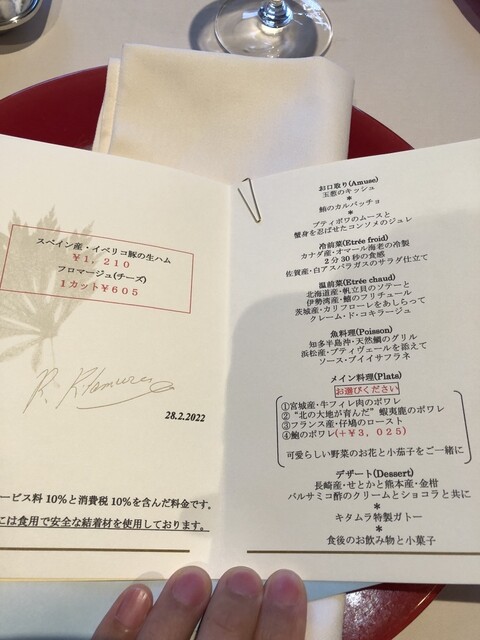 スペイン産・イベリコ豚の生ハム
￥１，２１０
フロマージュ(チーズ)
１カット￥６０５
28.2.2022
ービス料 10%と消費税 10%を含んだ料金です。
には食用で安全な結着材を使用しております。
お口取り(Amuse)
玉葱のキッシュ
*
鮪のカルパッチョ
*
プティポワのムースと
蟹身を忍ばせたコンソメのジュレ
冷前菜(Etrée froid)
カナダ産・オマール海老の冷製
２分 30 秒の食感
佐賀産・白アスパラガスのサラダ仕立て
温前菜(Etrée chaud)
北海道産・帆立貝のソテーと
伊勢湾産・鱧のフリチュール
茨城産・カリフローレをあしらって
クレーム・ド・コキラージュ
魚料理(Poisson)
知多半島沖・天然鯛のグリル
浜松産・プティヴェールを添えて
ソース・ブイイサフラネ
メイン料理(Plats)
お選びください
①宮城産・牛フィレ肉のポワレ
②“北の大地が育んだ” 蝦夷鹿のポワレ
③フランス産・仔鳩のロースト
④鮑のポワレ(+￥３，０２５)
可愛らしい野菜のお花と小茄子をご一緒に
デザート(Dessert)
長崎産・せとかと熊本産・金柑
バルサミコ酢のクリームとショコラと共に
*
キタムラ特製ガトー
*
食後のお飲み物と小菓子